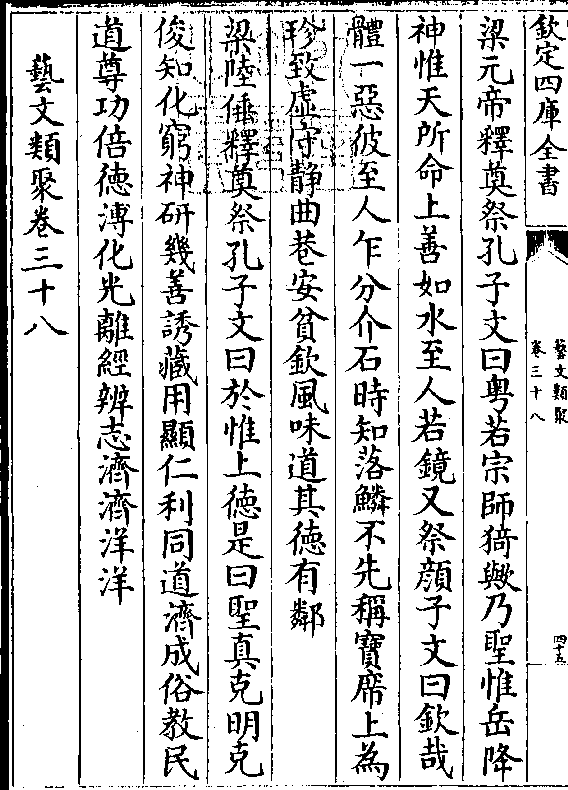 欽定四庫全書
藝文類聚
卷三十八
四十五
梁元帝釋奠祭孔子文曰粤若宗師猗歟乃聖惟岳降
神惟天所命上善如水至人若鏡又祭顔子文曰欽哉
體一惡彼至人乍分介石時知落鱗不先稱寶席上為
珍致虚守静曲巷安貧欽風味道其徳有鄰
梁陸倕釋奠祭孔子文曰於惟上徳是曰聖真克明克
俊知化窮神研幾善誘藏用顯仁利同道濟成俗教民
道尊功倍徳溥化光離經辨志濟濟洋洋
藝文類聚卷三十八